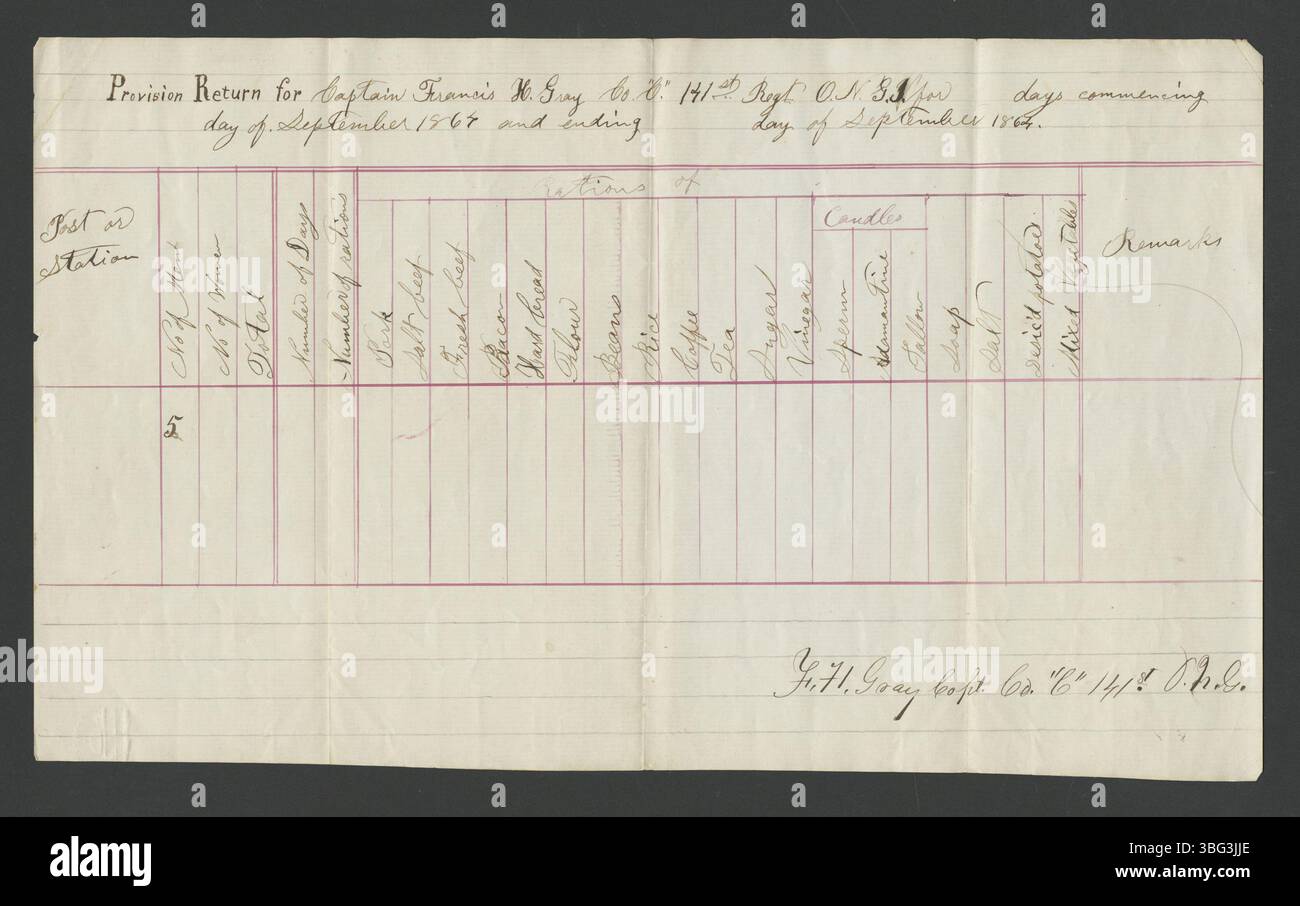 Provision Return for Captain Francis H. Gray Co. "C." 141st. Regt O. N. G. for days commencing
day of. September 1864 and ending day of September 1864.
Rations of
Post or
Station
No of Men
No of Women
Total
Number of Days
Number of rations
Pork
Salt beef
Fresh beef
Bacon
Hard bread
Flour
Beans
Rice
Coffee
Tea
Sugar
Vinegar
Candles
Sperm
Adamantine
Tallow
Soap
Salt
Desic'd potatoes.
Mixed Vegetables
Remarks
5
F. H. Gray Capt. Co. "C" 141st. O. N. G.
a
alamy
Image ID: 3BG3JJE
www.alamy.com